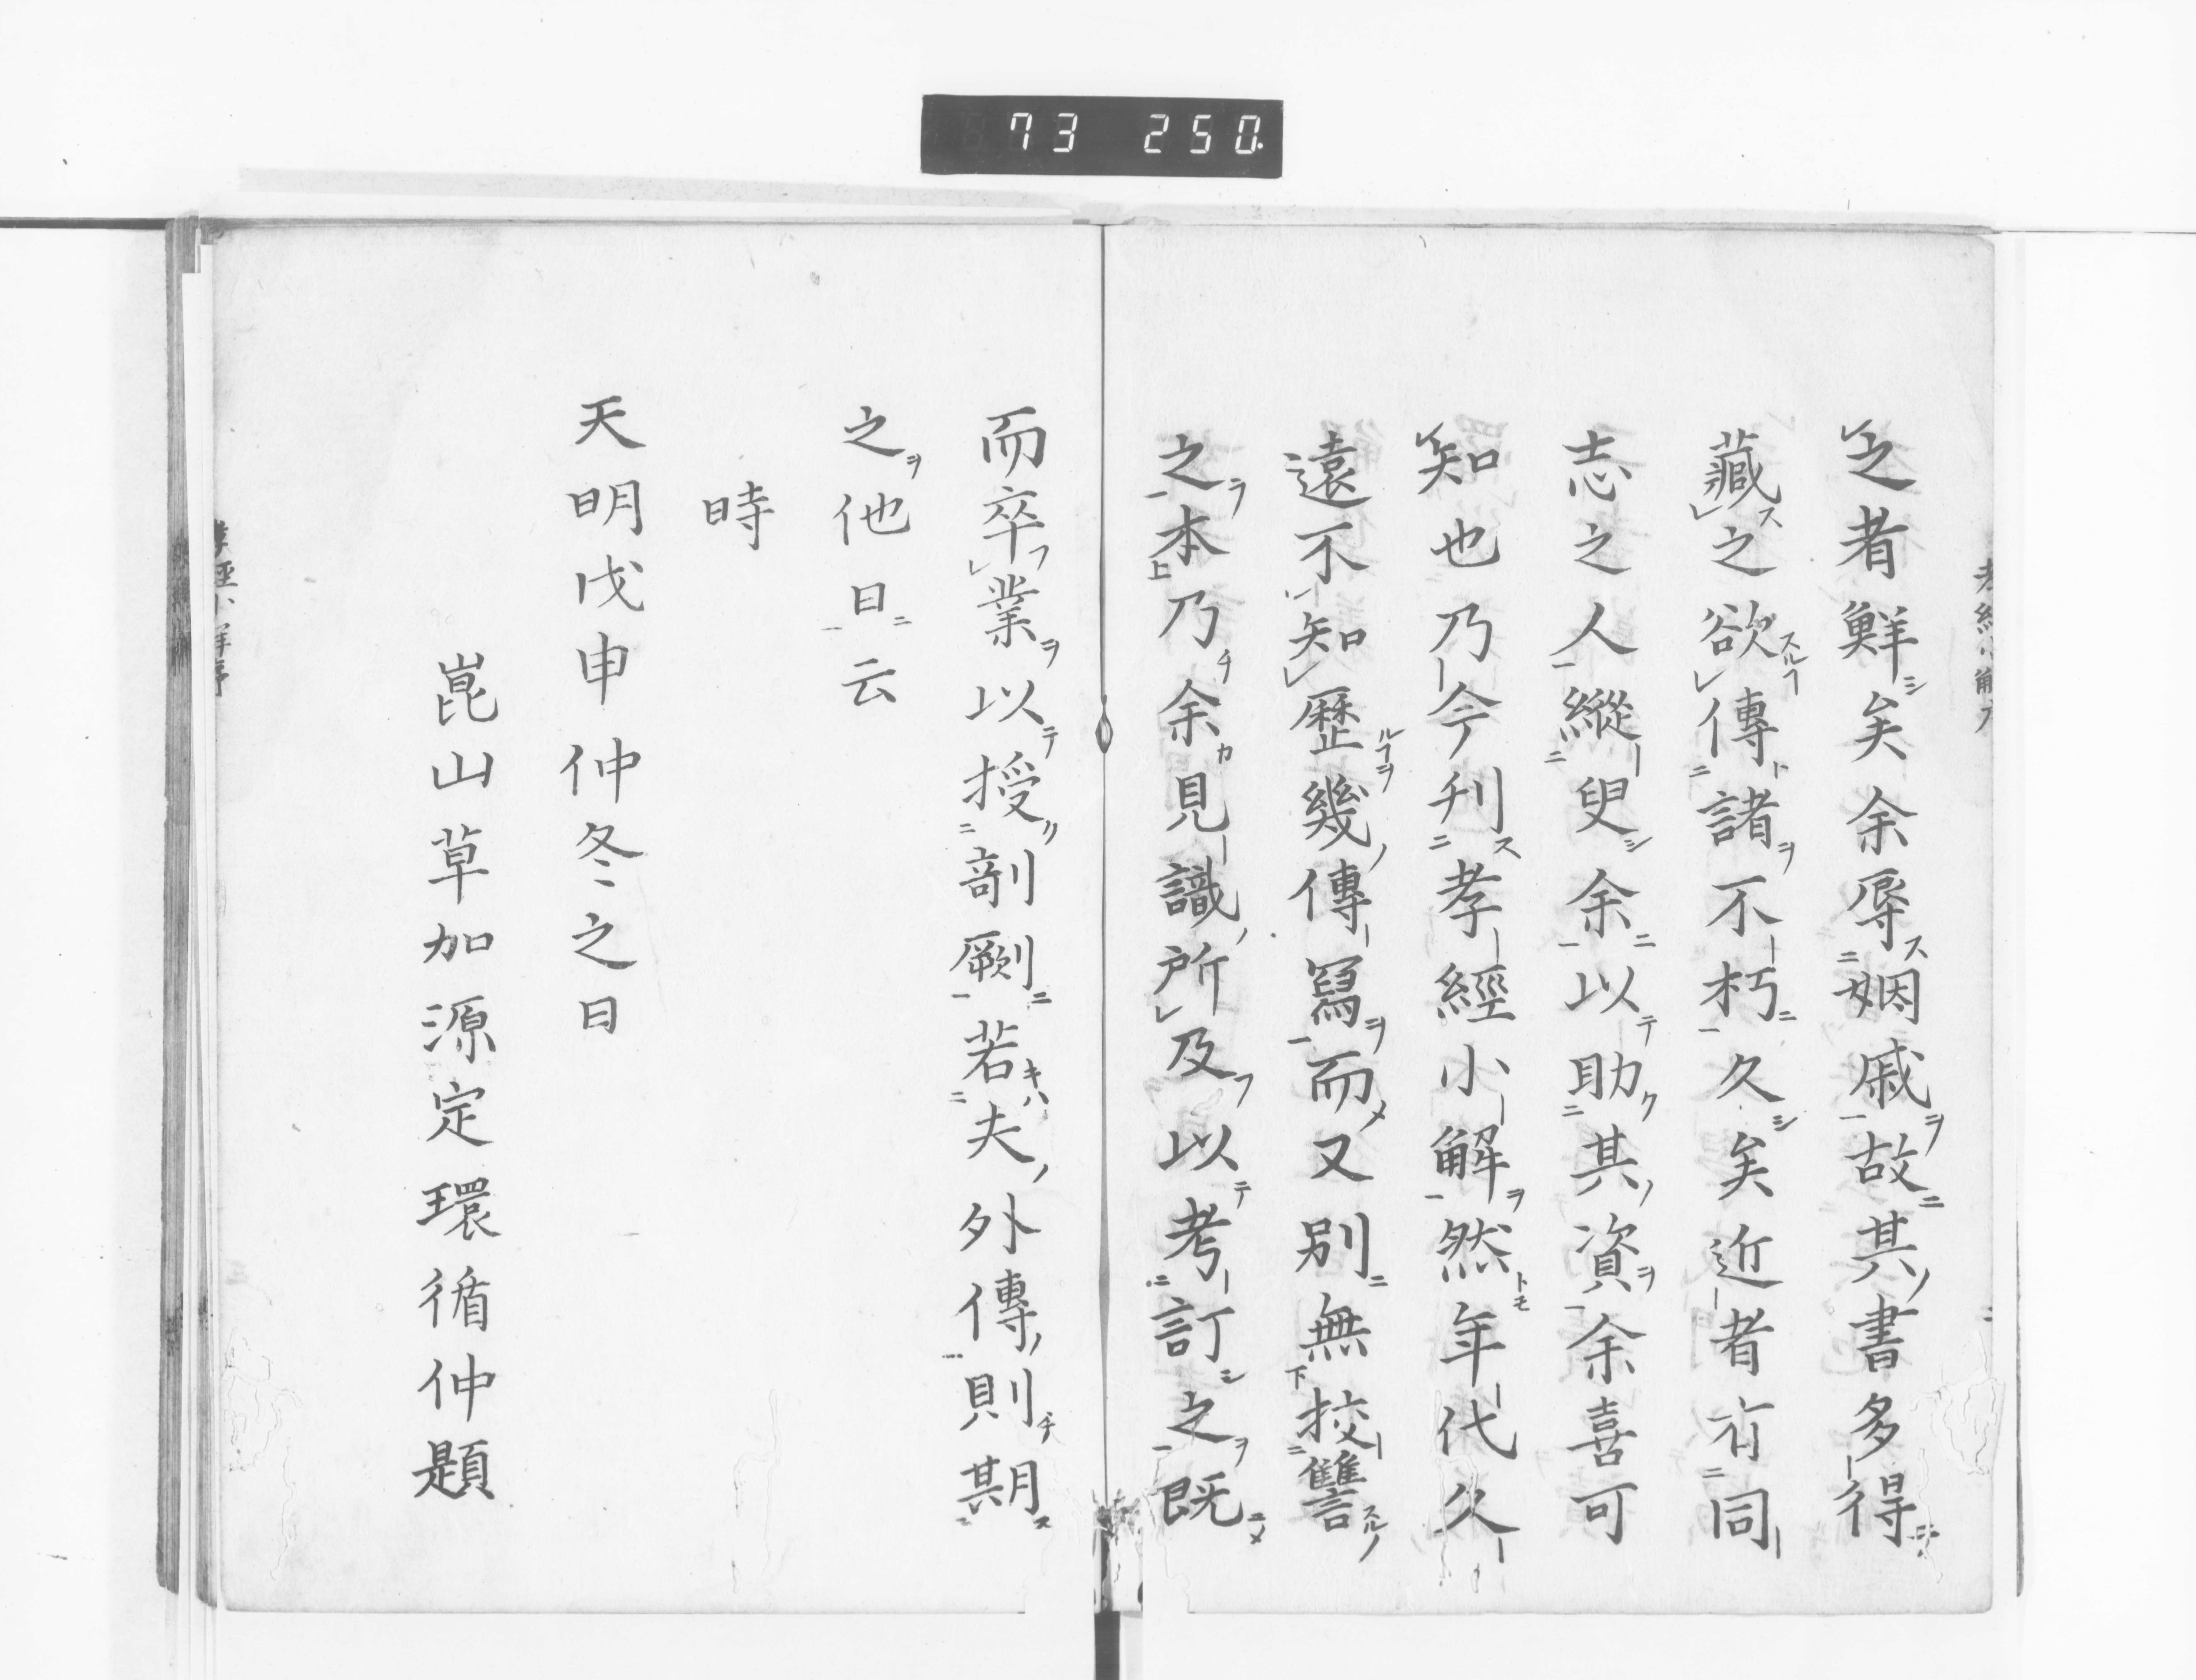 73 250.
之者鮮矣余辱姻戚故其書多得
藏之欲傳諸不朽久矣近者有同
志之人縱臾余以助其資余喜可
知也乃今刋孝經小解然年代久
遠不知歷幾傳寫而又別無挍讐
之本乃余見識所及以考訂之既
而卒業以授剞劂若夫外傳則期
之他日云
時
天明戊申仲冬之日
崑山草加源定環循仲題